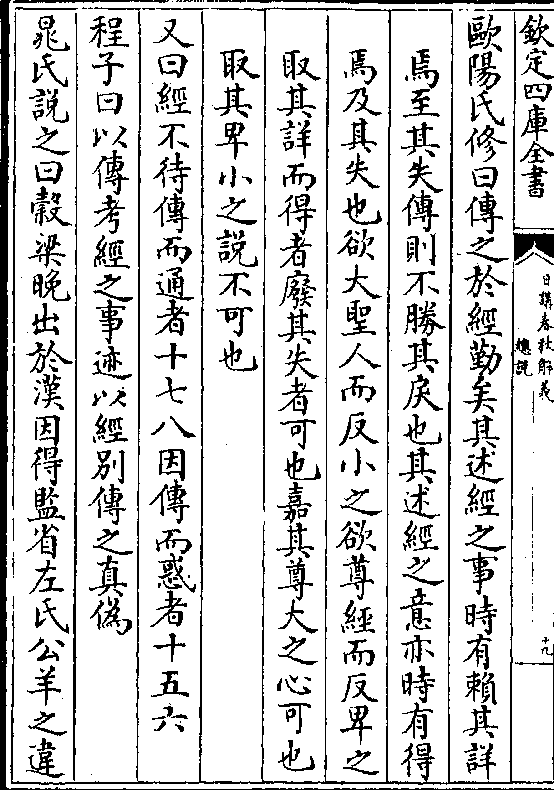 欽定四庫全書
日講春秋解義
總說
十九
歐陽氏修曰傳之於經勤矣其述經之事時有賴其詳
焉至其失傳則不勝其戾也其述經之意亦時有得
焉及其失也欲大聖人而反小之欲尊經而反卑之
取其詳而得者廢其失者可也嘉其尊大之心可也
取其卑小之說不可也
又曰經不待傳而通者十七八因傳而惑者十五六
程子曰以傳考經之事迹以經別傳之真偽
晁氏說之曰穀梁晚出於漢因得監省左氏公羊之違